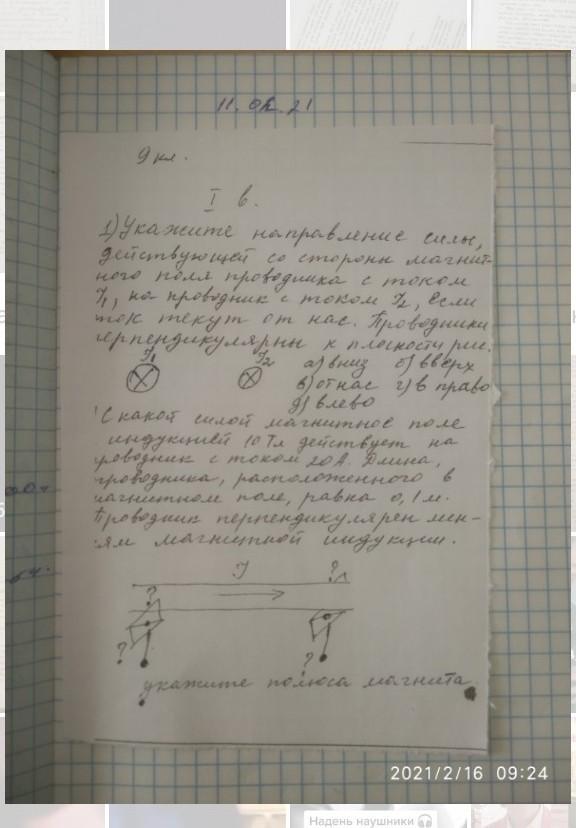 11. 02. 21
9 кл.
I в.
1) Укажите направление силы,
действующей со стороны магнит-
ного поля проводника с током
I₁, на проводник с током I₂, если
ток текут от нас. Проводники
перпендикулярны к плоскости рис.
I₁ I₂ а) вниз б) вверх
в) от нас г) в право
д) влево
С какой силой магнитное поле
индукцией 10 Тл действует на
роводник с током 20 А. Длина,
проводника, расположенного в
магнитном поле, равна 0,1 м.
Проводник перпендикулярен лин-
иям магнитной индукции.
I ?
?
? ?
укажите полюса магнита
2021/2/16 09:24
Надень наушники